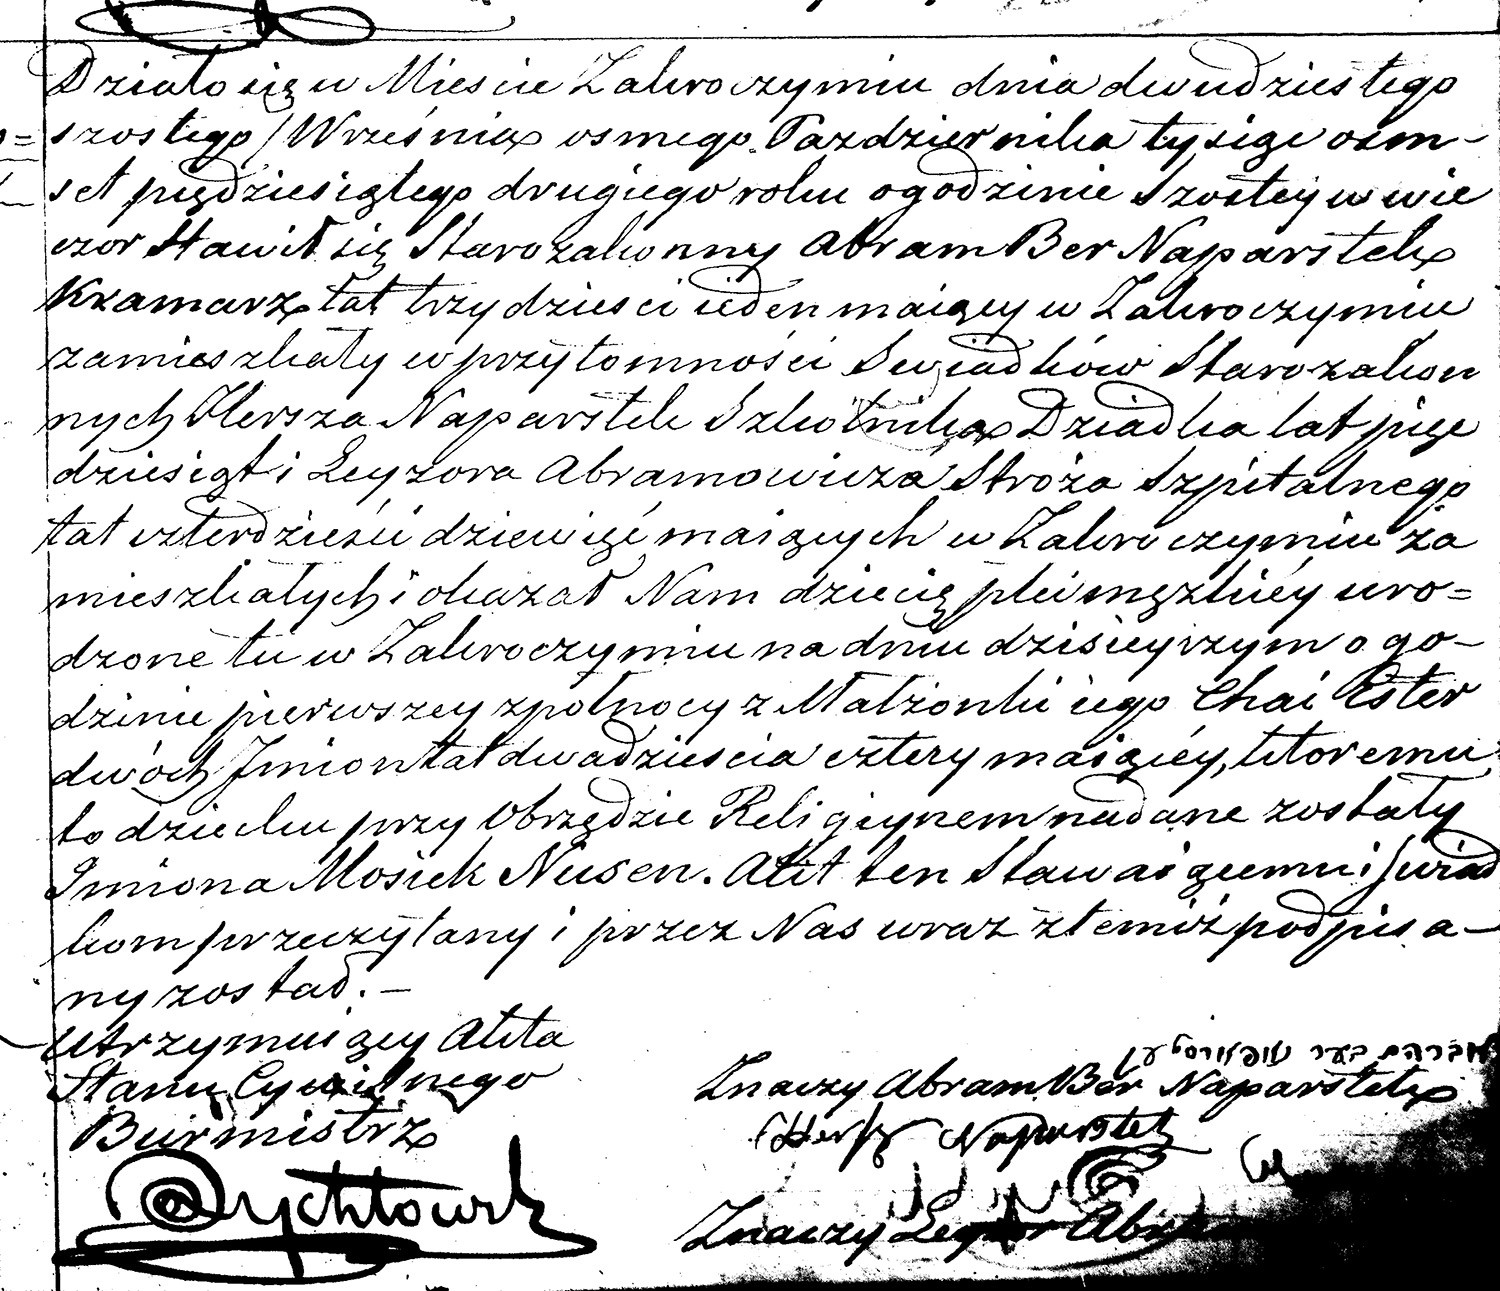 Działo się w Mieście Zakroczymiu dnia dwudziestego
szóstego / Września ósmego Pazdziernika tysiąc ośm-
set piędziesiątego drugiego roku o godzinie szóstey w wie
czor Stawił się Starozakonny Abram Ber Naparstek
Kramarz lat trzydzieści ieden maiący w Zakroczymiu
zamieszkały w przytomności Swiadków Starozakon
nych Hersza Naparstek Szkolnika Dziadka lat pięć
dziesiąt i Leyzora Abramowicza Stróża Szpitalnego
lat czterdzieści dziewięć maiących w Zakroczymiu za
mieszkałych i okazał Nam dziecię płci męzkiéy uro=
dzone tu w Zakroczymiu na dniu dzisieyszym o go-
dzinie pierwszey z północy z Małżonki iego Chai Ester
dwóch Jmion lat dwadzieścia cztery maiącéy, któremu
to dziecku przy Obrzędzie Religiynem nadane zostały
Imiona Mosiek Nusen. Akt ten Stawaiącemu i Swiad
kom przeczytany i przez Nas wraz z temiż podpisa-
ny został. -
Utrzymuiący Akta
Stanu Cywilnego
Burmistrz
Rychłowsk
אברהם בער נאפארסטעק
Znaczy Abram Ber Naparstek
Hersz Naparstek
Znaczy Leyzor